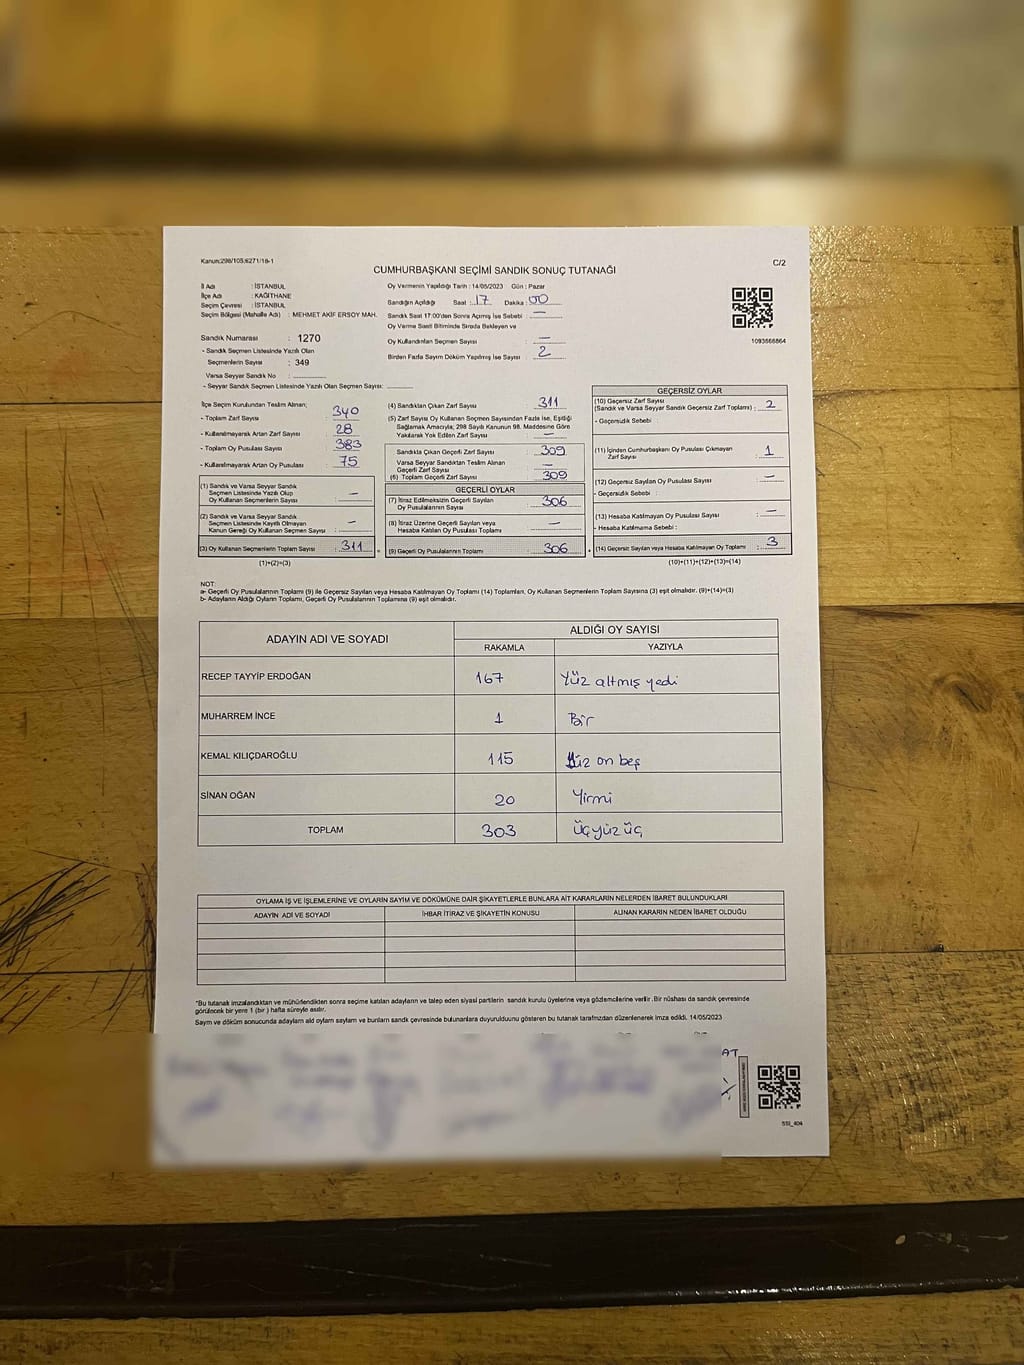 Kanun:298/105;6271/18-1
C/2
CUMHURBAŞKANI SEÇİMİ SANDIK SONUÇ TUTANAĞI
İl Adı : İSTANBUL
İlçe Adı : KAĞITHANE
Seçim Çevresi : İSTANBUL
Seçim Bölgesi (Mahalle Adı) : MEHMET AKİF ERSOY MAH.
Sandık Numarası : 1270
- Sandık Seçmen Listesinde Yazılı Olan
Seçmenlerin Sayısı : 349
Varsa Seyyar Sandık No :
- Seyyar Sandık Seçmen Listesinde Yazılı Olan Seçmen Sayısı:
Oy Vermenin Yapıldığı Tarih : 14/05/2023 Gün : Pazar
Sandığın Açıldığı Saat : 17 Dakika : 00
Sandık Saat 17:00'den Sonra Açmış İse Sebebi : —
Oy Verme Saati Bitiminde Sırada Bekleyen ve
Oy Kullandırılan Seçmen Sayısı : —
Birden Fazla Sayım Döküm Yapılmış İse Sayısı : 2
1093666864
İlçe Seçim Kurulundan Teslim Alınan;
- Toplam Zarf Sayısı : 340
- Kullanılmayarak Artan Zarf Sayısı : 28
- Toplam Oy Pusulası Sayısı : 383
- Kullanılmayarak Artan Oy Pusulası : 75
(1) Sandık ve Varsa Seyyar Sandık
Seçmen Listesinde Yazılı Olup
Oy Kullanan Seçmenlerin Sayısı : —
(2) Sandık ve Varsa Seyyar Sandık
Seçmen Listesinde Kayıtlı Olmayan
Kanun Gereği Oy Kullanan Seçmen Sayısı : —
(3) Oy Kullanan Seçmenlerin Toplam Sayısı : 311
(1)+(2)=(3)
(4) Sandıktan Çıkan Zarf Sayısı : 311
(5) Zarf Sayısı Oy Kullanan Seçmen Sayısından Fazla İse, Eşitliği
Sağlamak Amacıyla; 298 Sayılı Kanunun 98. Maddesine Göre
Yakılarak Yok Edilen Zarf Sayısı : —
Sandıkta Çıkan Geçerli Zarf Sayısı : 309
Varsa Seyyar Sandıktan Teslim Alınan
Geçerli Zarf Sayısı : —
(6) Toplam Geçerli Zarf Sayısı : 309
GEÇERLİ OYLAR
(7) İtiraz Edilmeksizin Geçerli Sayılan
Oy Pusulasının Sayısı : 306
(8) İtiraz Üzerine Geçerli Sayılan veya
Hesaba Katılan Oy Pusulası Toplamı : —
(9) Geçerli Oy Pusulalarının Toplamı : 306
GEÇERSİZ OYLAR
(10) Geçersiz Zarf Sayısı
(Sandık ve Varsa Seyyar Sandık Geçersiz Zarf Toplamı) : 2
- Geçersizlik Sebebi :
(11) İçinden Cumhurbaşkanı Oy Pusulası Çıkmayan
Zarf Sayısı : 1
(12) Geçersiz Sayılan Oy Pusulası Sayısı : —
- Geçersizlik Sebebi :
(13) Hesaba Katılmayan Oy Pusulası Sayısı : —
- Hesaba Katılmama Sebebi :
(14) Geçersiz Sayılan veya Hesaba Katılmayan Oy Toplamı : 3
(10)+(11)+(12)+(13)=(14)
NOT:
a- Geçerli Oy Pusulalarının Toplamı (9) ile Geçersiz Sayılan veya Hesaba Katılmayan Oy Toplamı (14) Toplamları, Oy Kullanan Seçmenlerin Toplam Sayısına (3) eşit olmalıdır. (9)+(14)=(3)
b- Adayların Aldığı Oyların Toplamı, Geçerli Oy Pusulalarının Toplamına (9) eşit olmalıdır.
ADAYIN ADI VE SOYADI
ALDIĞI OY SAYISI
RAKAMLA YAZIYLA
RECEP TAYYİP ERDOĞAN 167 Yüz altmış yedi
MUHARREM İNCE 1 Bir
KEMAL KILIÇDAROĞLU 115 Yüz on beş
SİNAN OĞAN 20 Yirmi
TOPLAM 303 Üçyüz üç
OYLAMA İŞ VE İŞLEMLERİNE VE OYLARIN SAYIM VE DÖKÜMÜNE DAİR ŞİKAYETLERLE BUNLARA AİT KARARLARIN NELERDEN İBARET BULUNDUKLARI
ADAYIN ADI VE SOYADI İHBAR İTİRAZ VE ŞİKAYETİN KONUSU ALINAN KARARIN NEDEN İBARET OLDUĞU
*Bu tutanak imzalandıktan ve mühürlendikten sonra seçime katılan adayların ve talep eden siyasi partilerin sandık kurulu üyelerine veya gözlemcilerine verilir .Bir nüshası da sandık çevresinde
görülecek bir yere 1 (bir ) hafta süreyle asılır.
Sayım ve döküm sonucunda adayların ald oyların sayların ve bunların sandık çevresinde bulunanlara duyurulduunu gösteren bu tutanak tarafmızdan düzenlenerek imza edildi. 14/05/2023
AT
SSI_404